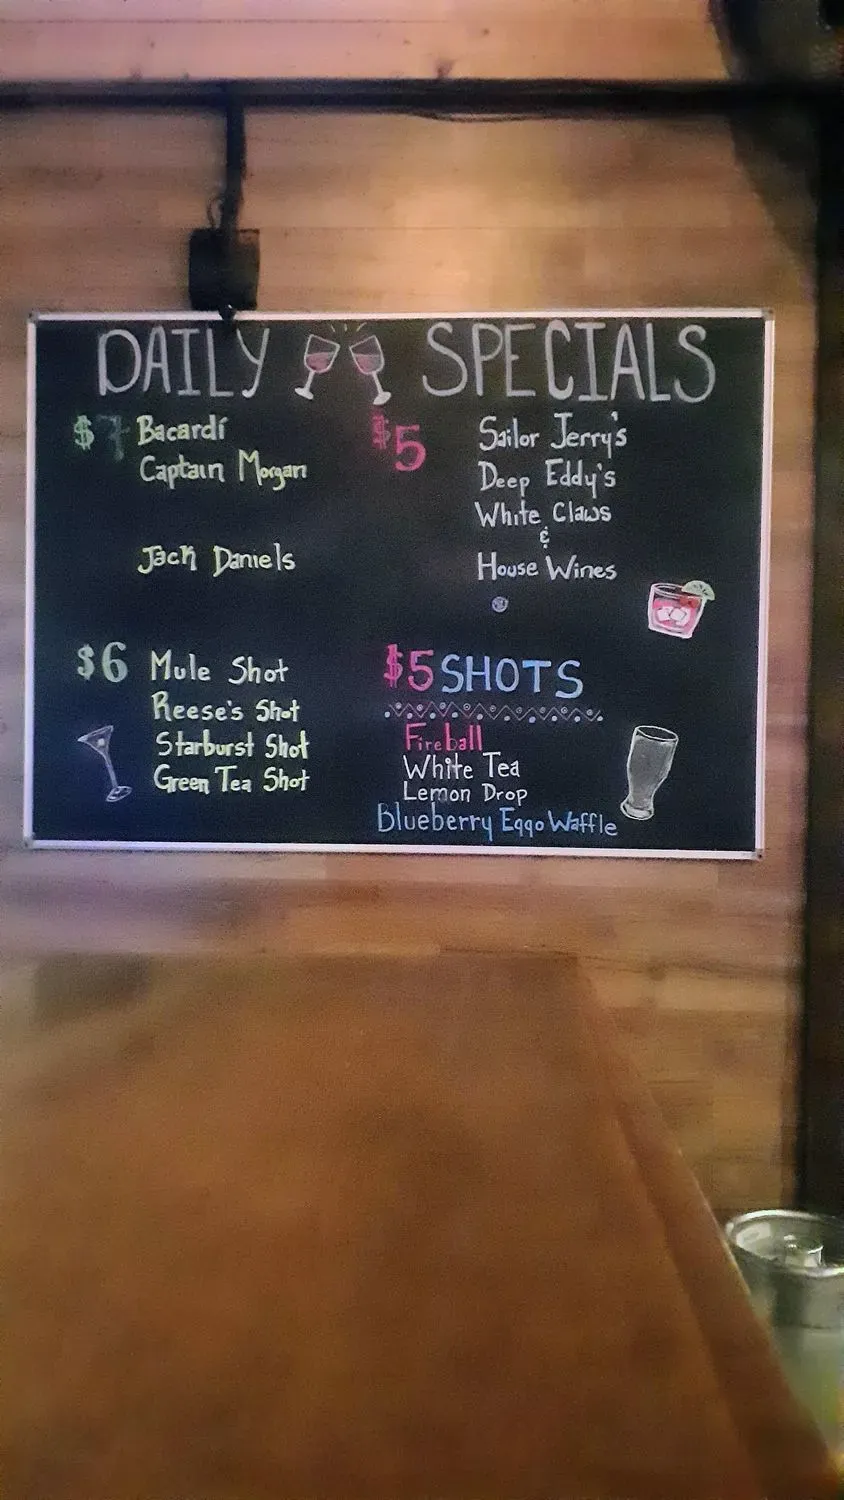 DAILY SPECIALS
$7 Bacardí
Captain Morgan
Jack Daniels
$5 Sailor Jerry's
Deep Eddy's
White Claws
&
House Wines
$6 Mule Shot
Reese's Shot
Starburst Shot
Green Tea Shot
$5 SHOTS
Fireball
White Tea
Lemon Drop
Blueberry Eggo Waffle